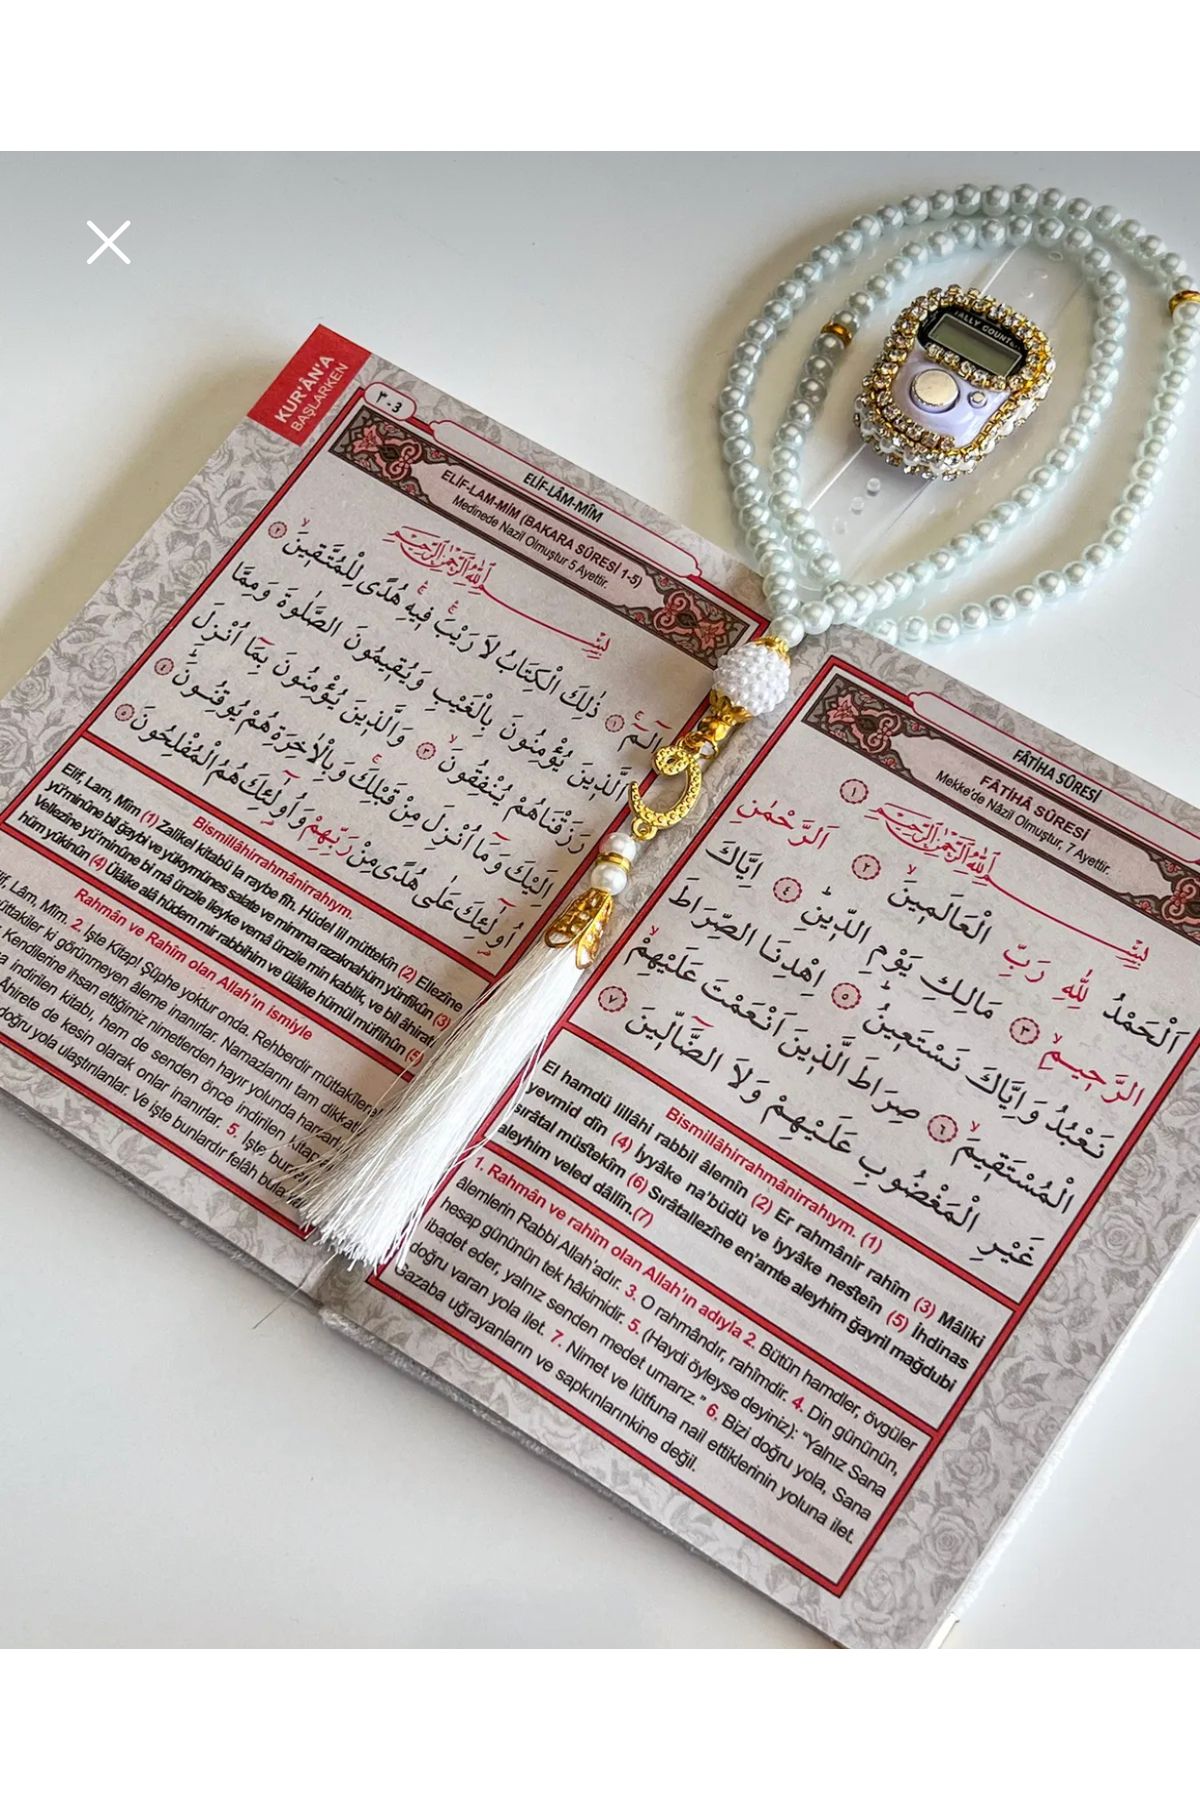 TALLY COUNTER
KUR'ÂN'A
BAŞLARKEN
٣-٤
ELİF-LÂM-MÎM
ELİF-LAM-MÎM (BAKARA SÛRESİ 1-5)
Medinede Nazil Olmuştur 5 Ayettir.
بِسْمِ اللهِ الرَّحْمٰنِ الرَّحِيمِ
الٓمٓ ١ ذٰلِكَ الْكِتَابُ لاَ رَيْبَ فِيهِ هُدًى لِلْمُتَّقِينَ ٢
اَلَّذِينَ يُؤْمِنُونَ بِالْغَيْبِ وَيُقِيمُونَ الصَّلٰوةَ وَمِمَّا
رَزَقْنَاهُمْ يُنْفِقُونَ ٣ وَالَّذِينَ يُؤْمِنُونَ بِمَٓا اُنْزِلَ
اِلَيْكَ وَمَٓا اُنْزِلَ مِنْ قَبْلِكَ وَبِالْاٰخِرَةِ هُمْ يُوقِنُونَ ٤
اُو۬لٰٓئِكَ عَلٰى هُدًى مِنْ رَبِّهِمْ وَاُو۬لٰٓئِكَ هُمُ الْمُفْلِحُونَ ٥
Bismillâhirrahmânirrahıym.
Elif, Lam, Mîm (1) Zalikel kitabü la raybe fîh. Hüdel lil müttekîn (2) Ellezîne
yü'minûne bil ğaybi ve yükıymûnes salate ve mimma razaknahüm yünfikûn (3)
Vellezîne yü'minûne bi mâ ünzile ileyke vemâ ünzile min kablik, ve bil âhirati
hüm yûkinûn (4) Ülâike alâ hüdem mir rabbihim ve ülâike hümül müflihûn (5)
Rahmân ve Rahîm olan Allah'ın ismiyle
Lâm, Mîm. 2. İşte Kitap! Şüphe yoktur onda. Rehberdir müttakilere
müttakiler ki görünmeyen âleme inanırlar. Namazlarını tam dikkat
Kendilerine ihsan ettiğimiz nimetlerden hayır yolunda harcarlar
indirilen kitabı, hem de senden önce indirilen kitap
Âhirete de kesin olarak onlar inanırlar. 5. İşte bun
doğru yola ulaştırılanlar. Ve işte bunlardır felâh bula
FÂTİHA SÛRESİ
FÂTİHÂ SÛRESİ
Mekke'de Nâzil Olmuştur, 7 Ayettir.
بِسْمِ اللهِ الرَّحْمٰنِ الرَّحِيمِ ١
اَلْحَمْدُ لِلّٰهِ رَبِّ الْعَالَمِينَ ٢ اَلرَّحْمٰنِ
الرَّحِيمِ ٣ مَالِكِ يَوْمِ الدِّينِ ٤ اِيَّاكَ
نَعْبُدُ وَاِيَّاكَ نَسْتَعِينُ ٥ اِهْدِنَا الصِّرَاطَ
الْمُسْتَقِيمَ ٦ صِرَاطَ الَّذِينَ اَنْعَمْتَ عَلَيْهِمْ
غَيْرِ الْمَغْضُوبِ عَلَيْهِمْ وَلاَ الضَّٓالِّينَ ٧
Bismillâhirrahmânirrahıym. (1)
El hamdü lillâhi rabbil âlemîn (2) Er rahmânir rahîm (3) Mâliki
yevmid dîn (4) İyyâke na'büdü ve iyyâke nesteîn (5) İhdinas
sırâtal müstekîm (6) Sırâtallezîne en'amte aleyhim ğayril mağdubi
aleyhim veled dâllîn.(7)
1. Rahmân ve rahîm olan Allah'ın adıyla 2. Bütün hamdler, övgüler
âlemlerin Rabbi Allah'adır. 3. O rahmândır, rahîmdir. 4. Din gününün,
hesap gününün tek hâkimidir. 5. (Haydi öyleyse deyiniz): "Yalnız Sana
ibadet eder, yalnız senden medet umarız." 6. Bizi doğru yola, Sana
doğru varan yola ilet. 7. Nimet ve lütfuna nail ettiklerinin yoluna ilet.
Gazaba uğrayanların ve sapkınlarınkine değil.